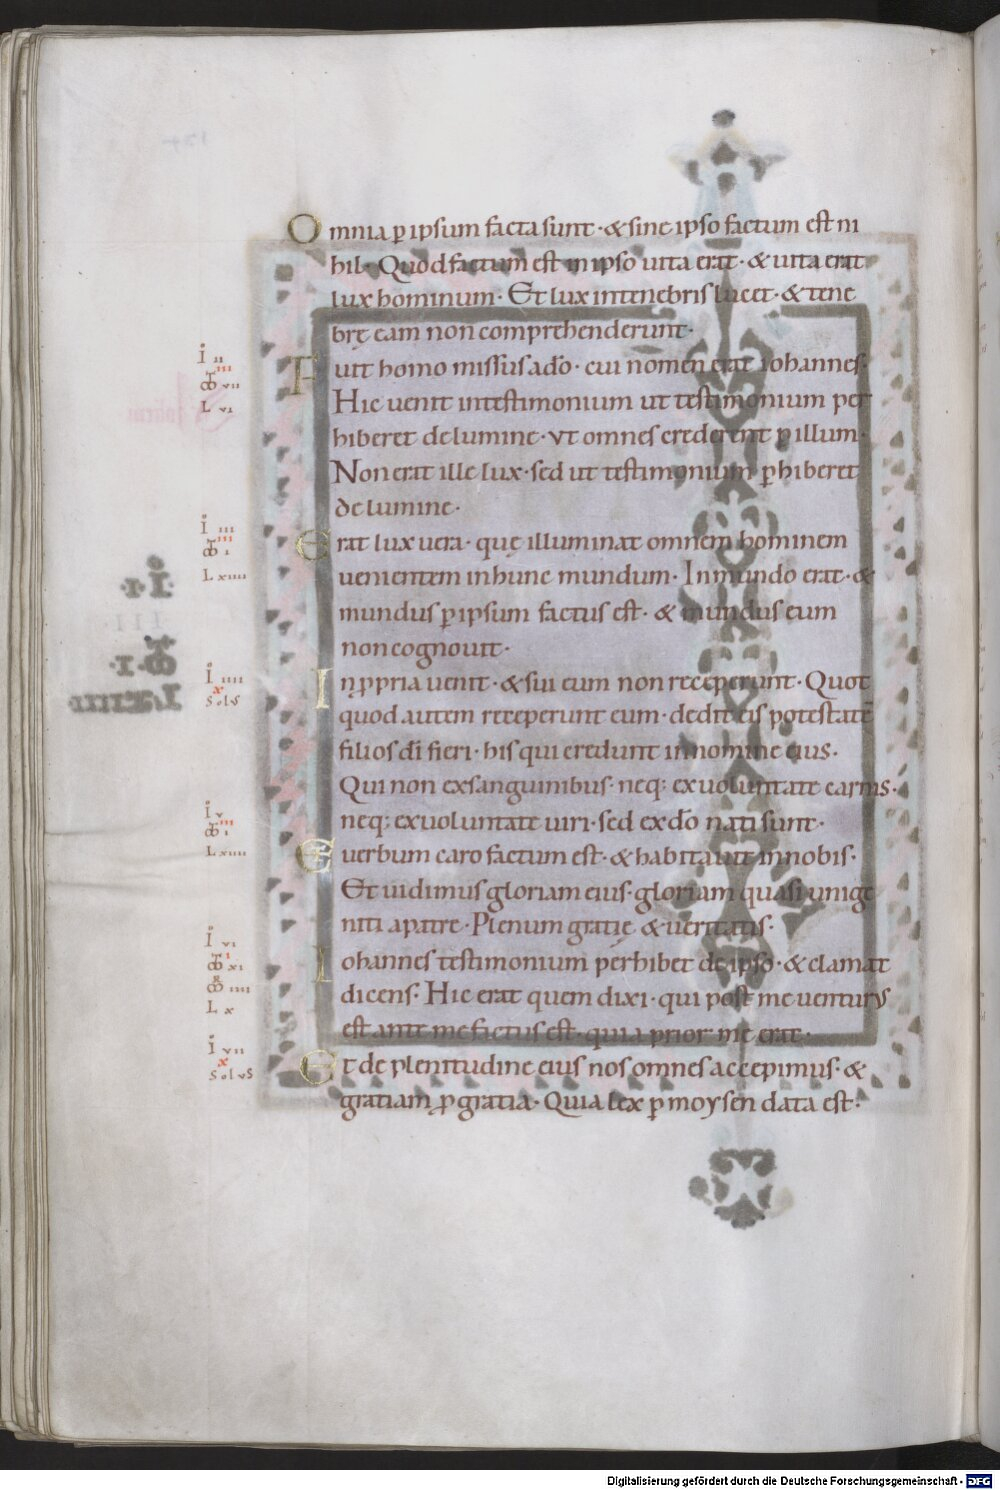 Omnia p̄ ipsum facta sunt · & sine ipso factum est ni
hil · Quod factum est in ipso uita erat · & uita erat
lux hominum · Et lux in tenebris lucet · & tene
brę eam non comprehenderunt ·
I II
Fuit homo missus a dō · cui nomen erat iohannes ·
III
VII
L VI
Hic uenit in testimonium ut testimonium per
hiberet de lumine · ut omnes crederent p̄ illum ·
Non erat ille lux · sed ut testimonium p̄hiberet
de lumine ·
I III
Erat lux uera · quę illuminat omnem hominem
III
I
L XIIII
uenientem in hunc mundum · In mundo erat · &
mundus p̄ ipsum factus est · & mundus eum
non cognouit ·
I IIII
In ꝓpria uenit · & sui eum non receperunt · Quot
X
SOLVS
quod autem receperunt eum · dedit eis potestatē
filios dī fieri · his qui credunt in nomine eius ·
Qui non ex sanguinibus · neq; ex uoluntate carnis ·
I V
III
I
neq; ex uoluntate uiri · sed ex dō nati sunt ·
L XIIII
Et uerbum caro factum est · & habitauit in nobis ·
Et uidimus gloriam eius · gloriam quasi unige
niti a patre · Plenum gratię & ueritatis ·
I VI
Iohannes testimonium perhibet de ipso · & clamat
I
XI
IIII
L X
dicens · Hic erat quem dixi · qui post me uenturus
est ante me factus est · quia prior me erat ·
I VII
Et de plenitudine eius nos omnes accepimus · &
X
SOLVS
gratiam ꝓ gratia · Quia lex p̄ moysen data est ·